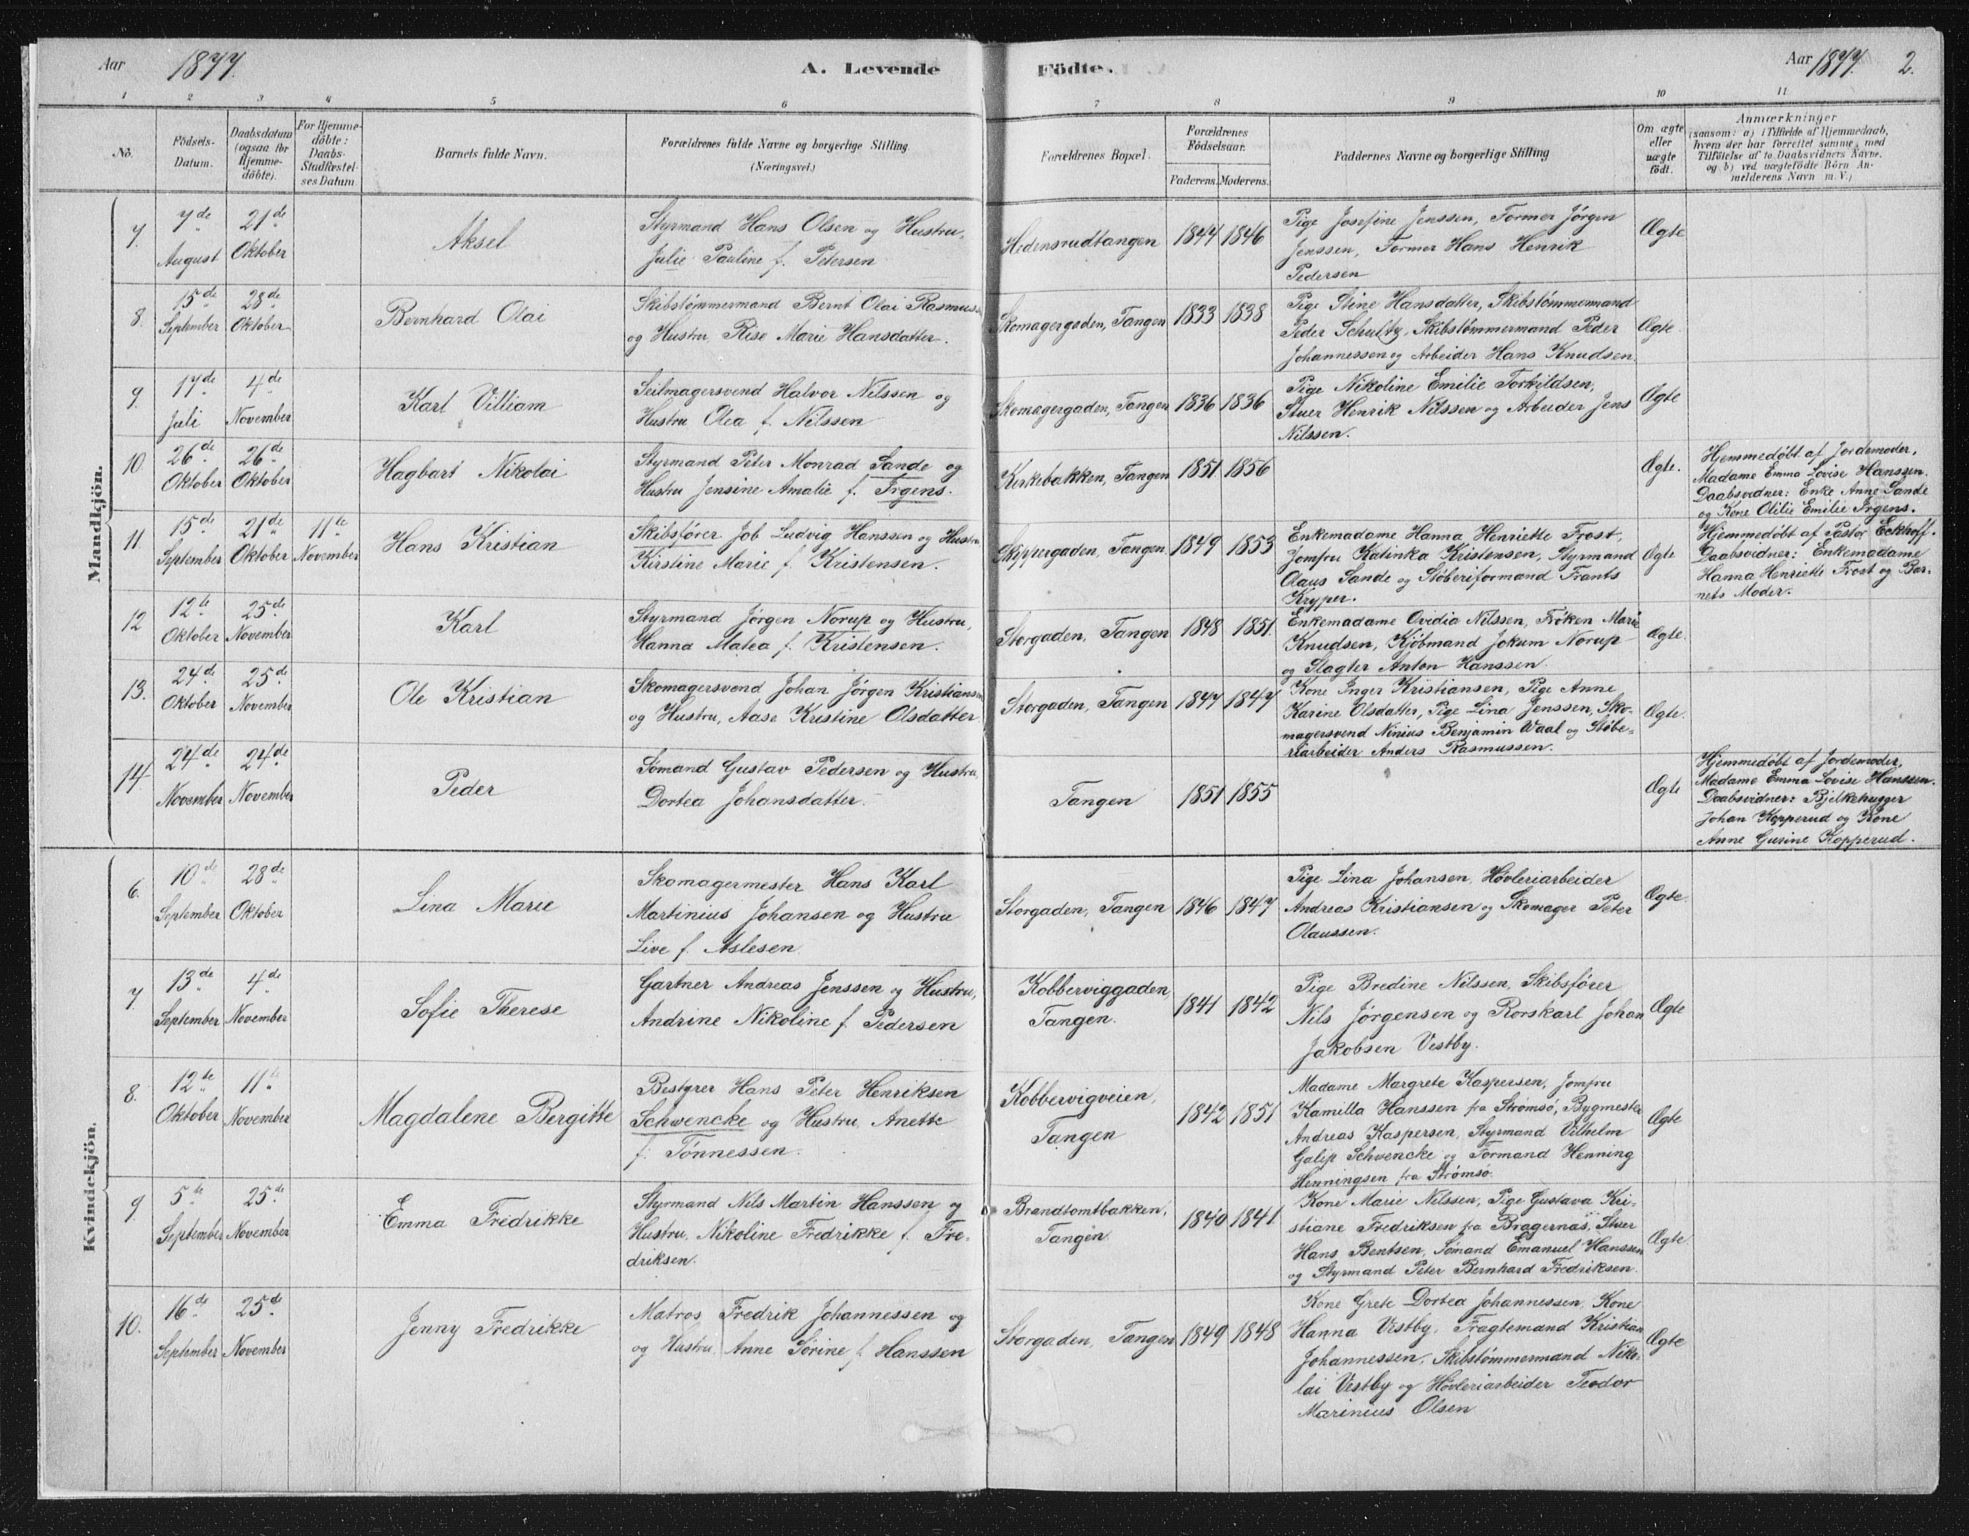 Aar 1877. A. Levende Födte. Aar 1877. 2.
1 2 3 4 5 6 7 8 9 10 11
No. Födsels-Datum. Daabsdatum (ogsaa for Hjemme-döbte). For Hjemme-döbte: Daabs-Stadfæstel-ses Datum Barnets fulde Navn. Forældrenes fulde Navne og borgerlige Stilling (Næringsvei.) Forældrenes Bopæl. Forældrenes Födselsaar. Faderens. Moderens. Faddernes Navne og borgerlige Stilling Om ægte eller uægte födt. Anmærkninger (saasom: a) i Tilfælde af Hjemmedaab, hvem der har forrettet samme, med Tilföielse af to Daabsvidners Navne, og b) ved uægtefödte Börn An-melderens Navn m. V.)
Mandkjön.
7. 7de August 21de Oktober Aksel Styrmand Hans Olsen og Hustru, Julie Pauline f. Petersen Hedensrudtangen 1844 1846 Pige Josefine Jenssen, Former Jørgen Jenssen, Former Hans Henrik Pedersen Ægte
8. 15de September 28de Oktober Bernhard Olai Skibstømmermand Bernt Olai Rasmuss. og Hustru, Rise Marie Hansdatter. Skomagergaden, Tangen 1833 1838 Pige Stine Hansdatter, Skibstømmermand Peder Schultz, Skibstømmermand Peder Johannessen og Arbeider Hans Knudsen. Ægte.
9. 17de Juli 4de November Karl Villiam Seilmagersvend Halvor Nilssen og Hustru Olea f. Nilssen Skomagergaden, Tangen 1836 1836 Pige Nikoline Emilie Torkildsen, Stuer Henrik Nilssen og Arbeider Jens Nilssen. Ægte
10. 26de Oktober 26de Oktober Hagbart Nikolai Styrmand Peter Monrad Sande og Hustru Jensine Amalie f. Irgens. Kirkebakken, Tangen 1851 1856 Ægte. Hjemmedøbt af Jordemoder, Madame Emma Lovise Hanssen. Daabsvidner: Enke Anne Sande og Kone Otilie Emilie Irgens.
11. 15de September 21de Oktober 11te November Hans Kristian Skibsfører Job Ludvig Hanssen og Hustru Kirstine Marie f. Kristensen. Skippergaden, Tangen 1849 1853 Enkemadame Hanna Henriette Frost, Jomfru Katinka Kristensen, Styrmand Olaus Sande og Støberiformand Frants Kryper. Ægte Hjemmedøbt af Pastor Eckhoff. Daabsvidner: Enkemadame Hanna Henriette Frost og Bar-nets Moder.
12 12te Oktober 25de November Karl Styrmand Jørgen Norup og Hustru, Hanna Matea f. Kristensen. Storgaden, Tangen 1848 1851. Enkemadame Ovidia Nilssen, Frøken Marie Knudsen, Kjøbmand Jokum Norup og Slagter Anton Hanssen. Ægte.
13. 24de Oktober 25de November Ole Kristian Skomagersvend Johan Jørgen Kristiansen og Hustru, Aase Kristine Olsdatter Storgaden, Tangen 1847 1847 Kone Inger Kristiansen, Pige Anne Karine Olsdatter, Pige Lina Jenssen, Sko-magersvend Ninius Benjamin Waal og Støbe-riarbeider Anders Rasmussen. Ægte.
14 24de November 24de November Peder Sømand Gustav Pedersen og Hustru, Dortea Johansdatter. Tangen 1851 1855 Ægte Hjemmedøbt af Jordemoder, Madame Emma Lovise Hanssen. Daabsvidner: Bjelkehugger Johan Kopperud og Kone Anne Gusine Kopperud.
Kvindekjön.
6. 10de September 28de Oktober Lina Marie Skomagermester Hans Karl Martinius Johansen og Hustru Live f. Aslesen. Storgaden, Tangen 1846 1847 Pige Lina Johansen, Høvleriarbeider Andreas Kristiansen og Skomager Peter Olaussen. Ægte.
7 13de September 4de November Sofie Therese Gartner Andreas Jenssen og Hustru, Andrine Nikoline f. Pedersen Kobberviggaden, Tangen. 1841 1842 Pige Bredine Nilssen, Skibsfører Nils Jörgensen og Rorskarl Johan Jakobsen Vestby. Ægte
8. 12te Oktober 11te November Magdalene Bergitte Bestyrer Hans Peter Henriksen Schwencke og Hustru, Anette f. Tønnessen. Kobbervigveien, Tangen 1842 1851 Madame Margrete Kaspersen, Jomfru Kamilla Hanssen fra Strømsø, Bygmester Andreas Kaspersen, Styrmand Vilhelm Schwencke og Formand Henning Henningsen fra Strømsø. Ægte
9. 5te September 25de November Emma Fredrikke Styrmand Nils Martin Hanssen og Hustru, Nikoline Fredrikke f. Fre-driksen. Brandtomtbakken, Tangen 1840 1841 Kone Marie Nilssen, Pige Gustava Kri-stiane Fredriksen fra Bragernæs, Stuer Hans Bentsen, Sømand Emanuel Hanssen og Styrmand Peter Bernhard Fredriksen. Ægte
10. 16de September 25de November Jenny Fredrikke Matros Fredrik Johannessen og og Hustru, Anne Sörine f. Hanssen Storgaden, Tangen 1849 1848 Kone Grete Dortea Johannessen, Kone Hanna Vestby, Fragtemand Kristian Johannessen, Skibstømmermand Niko-lai Vestby og Høvleriarbeider Teodor Marinius Olsen Ægte